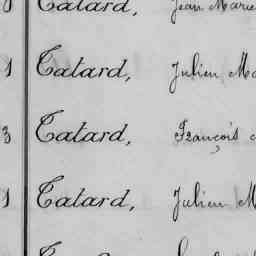 Tatard, Jean Marie
1 Tatard, Julien Ma
3 Tatard, François
1 Tatard, Julien M